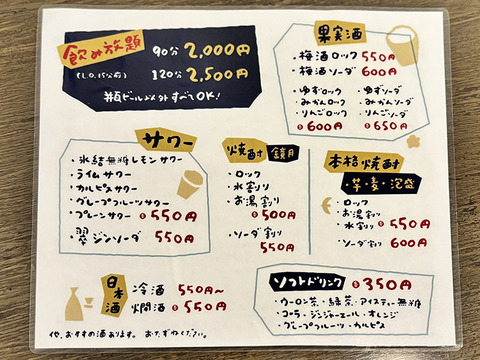 飲み放題
(L.O.15分前)
90分 2,000円
120分 2,500円
瓶ビール以外すべてOK!
果実酒
・梅酒ロック 550円
・梅酒ソーダ 600円
・ゆずロック
・みかんロック
・りんごロック
各600円
・ゆずソーダ
・みかんソーダ
・りんごソーダ
各650円
サワー
・氷結無糖レモンサワー
・ライムサワー
・カルピスサワー
・グレープフルーツサワー
・プレーンサワー 各550円
翠ジンソーダ 550円
焼酎 鏡月
・ロック
・水割り
・お湯割り
各500円
・ソーダ割り
550円
本格焼酎
・芋・麦・泡盛
・ロック
・お湯割り
・水割り 各550円
・ソーダ割り 600円
日本酒
冷酒 550円~
燗酒 各550円
ソフトドリンク 各350円
・ウーロン茶・緑茶・アイスティー無糖
・コーラ・ジンジャーエール・オレンジ
・グレープフルーツ・カルピス
他、おすすめ酒あります。おたずねください。